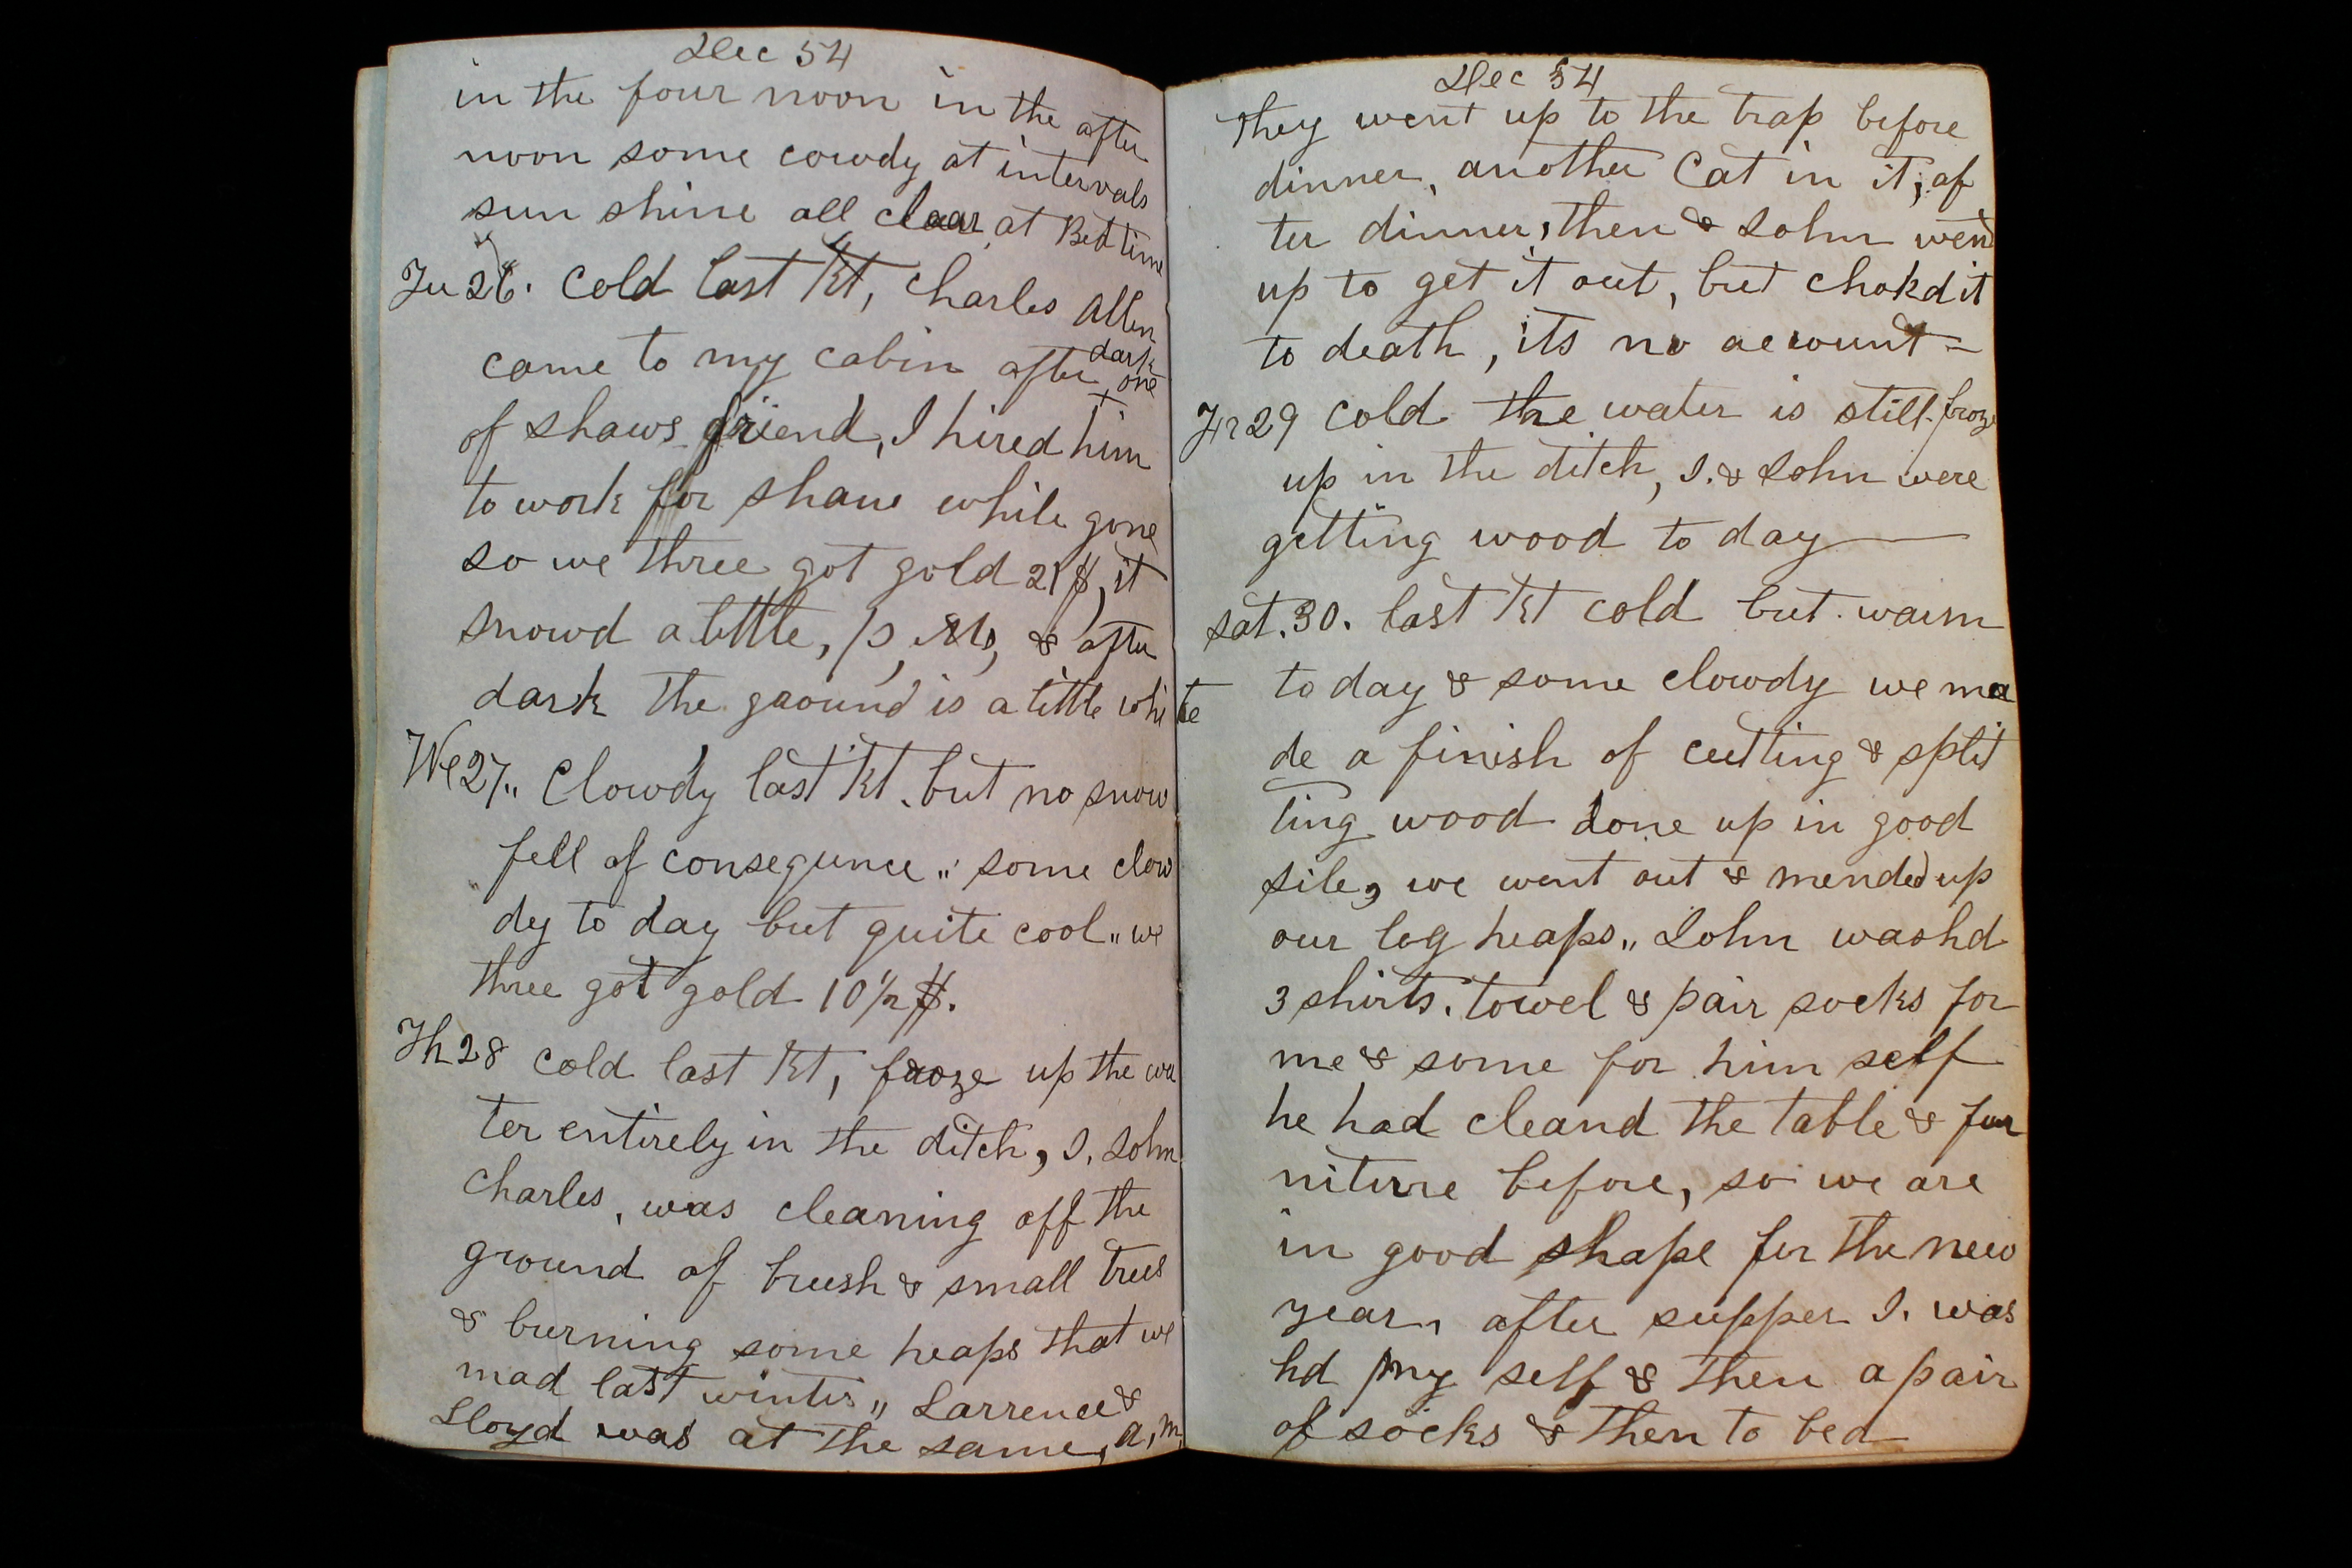 Dec 54
in the four noon in the after
noon some cowdy at intervals
sun shine all claar at Bed time
Tu 26. Cold last Nt, Charles Allen
came to my cabin after dark one
of shaws friend, I hired him
to work for shaw while gone
so we three got gold 21 $, it
snowd a little, P, M, & after
dark the ground is a little white
We 27. Clowdy last Nt. but no snow
fell of consequnce. some clow
dy to day but quite cool we
three got gold 10 1/2 $.
Th 28 Cold last Nt, froze up the wa
ter entirely in the ditch, I, John
Charles, was cleaning off the
ground of brush & small trees
& burning some heaps that we
mad last winter, Larrence &
Lloyd was at the same, a, m,
Dec 54
they went up to the trap before
dinner, another Cat in it, af
ter dinner, then & John wend
up to get it out, but chokd it
to death, its no account =
Fr 29 Cold the water is still froze
up in the ditch, I. & John were
getting wood to day
Sat. 30. last Nt cold but warm
to day & some clowdy we ma
de a finish of cutting & split
ting wood done up in good
sile, we went out & mended up
our log heaps, John washd
3 shirts. towel & pair socks for
me & some for him self
he had cleand the table & fur
niture before, so we are
in good shape for the new
year, after supper I. was
hd my self & then a pair
of socks & then to bed